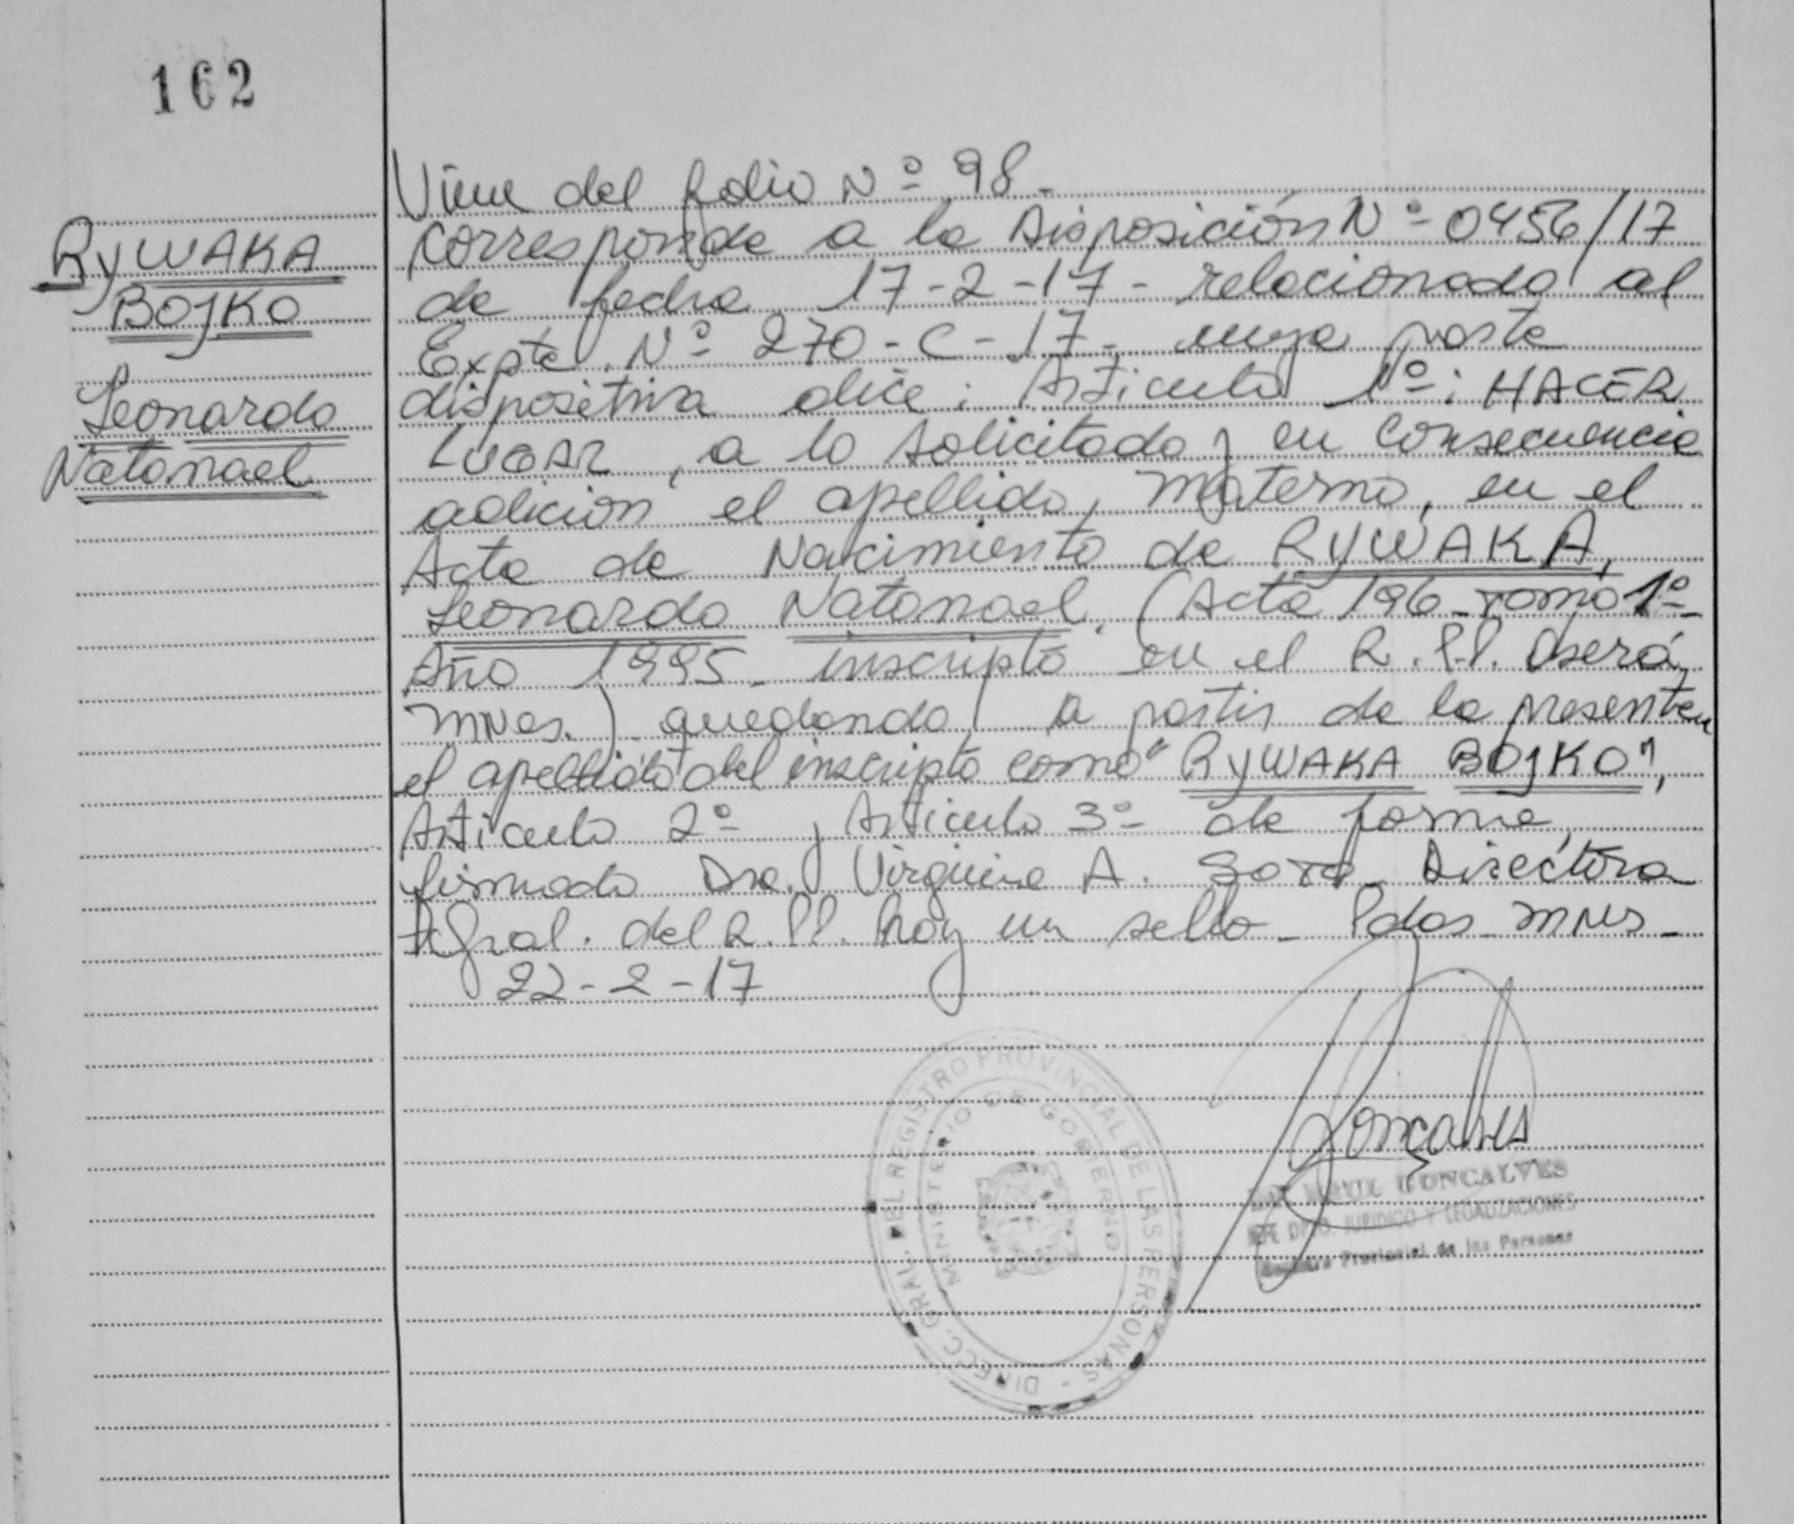 162
RYWAKA
BOJKO
Leonardo
Natanael
Viene del folio Nº 98-
Corresponde a la Disposición Nº 0456/17
de fecha 17-2-17- relacionado al
Expte. Nº 270-C-17, cuya parte
dispositiva dice: Artículo 1º: HACER
LUGAR, a lo solicitado y en consecuencia
adicion el apellido, materno, en el
Acta de Nacimiento de RYWAKA,
Leonardo Natanael, (Acta 196-Tomo 1º-
Año 1995- inscripto en el R.P.P. Oberá,
MNes.) quedando a partir de la presente
el apellido del inscripto como "RYWAKA BOJKO",
Artículo 2º y Artículo 3º de forma,
firmado Dra. Virginia A. Directora
Gral. del R.P.P. hay un sello- Pdas- MNes-
22-2-17
DIRECC. GRAL. DEL REGISTRO PROVINCIAL DE LAS PERSONAS -
MINISTERIO DE GOBIERNO
Goncalves
GONCALVES
JEFE DPTO. JURIDICO Y LEGALIZACIONES
Registro Provincial de las Personas